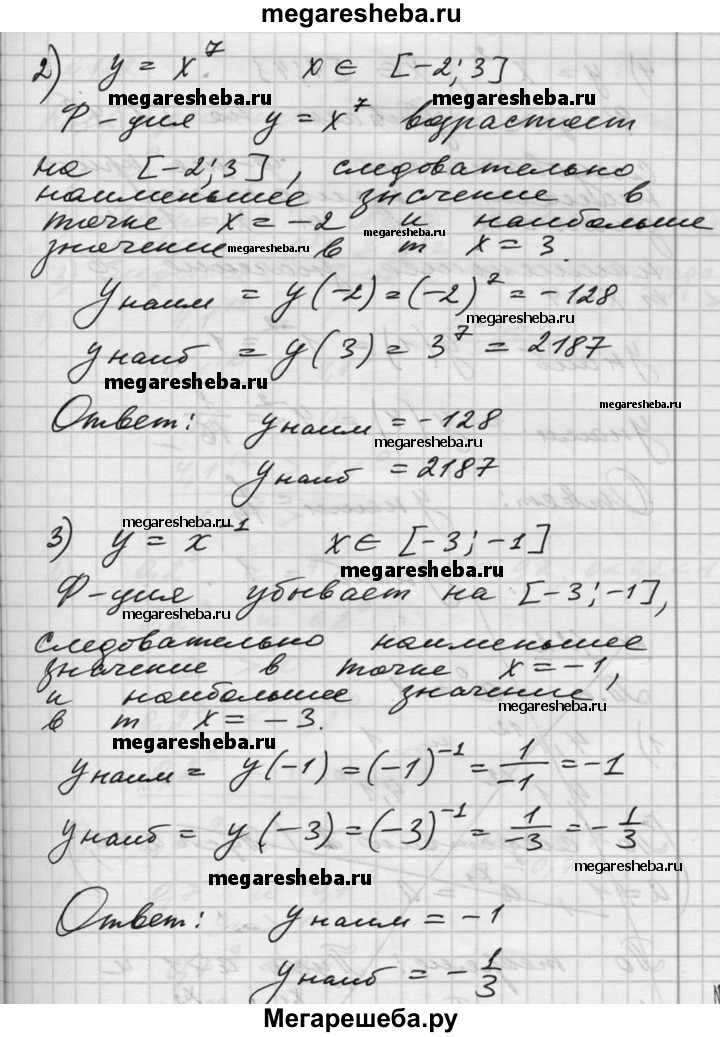 megaresheba.ru
2) y = x⁷ x ∈ [-2; 3]
megaresheba.ru megaresheba.ru
Ф-ция y = x⁷ возрастает
на [-2; 3], следовательно
наименьшее значение в
точке x = -2 и наибольше
megaresheba.ru
значение в т x = 3.
megaresheba.ru
yнаим = y(-2) = (-2)⁷ = -128
megaresheba.ru
yнаиб = y(3) = 3⁷ = 2187
megaresheba.ru
megaresheba.ru
Ответ: yнаим = -128
megaresheba.ru
yнаиб = 2187
megaresheba.ru
3) y = x⁻¹ x ∈ [-3; -1]
megaresheba.ru
Ф-ция убывает на [-3; -1],
megaresheba.ru
следовательно наименьшее
значение в точке x = -1,
и наибольшее значение
megaresheba.ru
в т x = -3.
megaresheba.ru
yнаим = y(-1) = (-1)⁻¹ = 1/-1 = -1
yнаиб = y(-3) = (-3)⁻¹ = 1/-3 = -1/3
megaresheba.ru
megaresheba.ru
Ответ: yнаим = -1
yнаиб = -1/3
Мегарешеба.ру